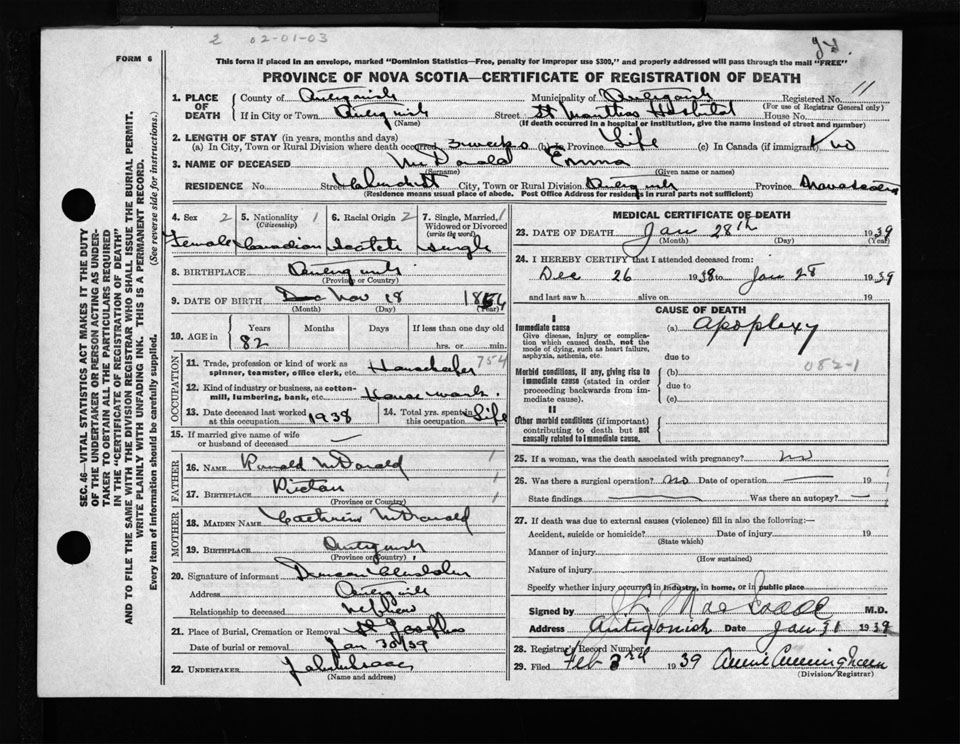 2 02-01-03
FORM 6
This form if placed in an envelope, marked "Dominion Statistics—Free, penalty for improper use $300," and properly addressed will pass through the mail "FREE"
PROVINCE OF NOVA SCOTIA—CERTIFICATE OF REGISTRATION OF DEATH
SEC. 46—VITAL STATISTICS ACT MAKES IT THE DUTY
OF THE UNDERTAKER OR PERSON ACTING AS UNDER-
TAKER TO OBTAIN ALL THE PARTICULARS REQUIRED
IN THE "CERTIFICATE OF REGISTRATION OF DEATH"
AND TO FILE THE SAME WITH THE DIVISION REGISTRAR WHO SHALL ISSUE THE BURIAL PERMIT.
WRITE PLAINLY WITH UNFADING INK. THIS IS A PERMANENT RECORD.
Every item of information should be carefully supplied. (See reverse side for instructions.)
1. PLACE OF DEATH County of Antigonish Municipality of Antigonish Registered No. 11
(For use of Registrar General only)
If in City or Town Antigonish Street St Marthas Hospital House No.
(Name) (If death occurred in a hospital or institution, give the name instead of street and number)
2. LENGTH OF STAY (in years, months and days)
(a) In City, Town or Rural Division where death occurred 3 weeks (b) in Province Life (c) In Canada (if immigrant)
3. NAME OF DECEASED McDonald Emma
(Surname) (Given name or names)
RESIDENCE No. Street City, Town or Rural Division Antigonish Province Nova Scotia
(Residence means usual place of abode. Post Office Address for residents in rural parts not sufficient)
4. Sex 2 5. Nationality 1 6. Racial Origin 2 7. Single, Married, 1
(Citizenship) Widowed or Divorced
(write the word)
Female Canadian Scotch Single
8. BIRTHPLACE Antigonish
(Province or Country)
9. DATE OF BIRTH Dec Nov 18 1856
(Month) (Day) (Year)
10. AGE in Years Months Days If less than one day old
82 hrs. or min.
OCCUPATION
11. Trade, profession or kind of work as spinner, teamster, office clerk, etc. Housekeeper 754
12. Kind of industry or business, as cotton-mill, lumbering, bank, etc. House work.
13. Date deceased last worked at this occupation 1938 14. Total yrs. spent in this occupation Life
15. If married give name of wife or husband of deceased —
FATHER
16. NAME Ronald McDonald 1
17. BIRTHPLACE Pictou 1
(Province or Country)
MOTHER
18. MAIDEN NAME Catherine McDonald
19. BIRTHPLACE Antigonish 1
(Province or Country)
20. Signature of informant Duncan Chisholm
Address Antigonish
Relationship to deceased nephew
21. Place of Burial, Cremation or Removal St Josephs
Date of burial or removal Jan 30/39
22. UNDERTAKER
(Name and address)
MEDICAL CERTIFICATE OF DEATH
23. DATE OF DEATH Jan 28th 1939
(Month) (Day) (Year)
24. I HEREBY CERTIFY that I attended deceased from:
Dec 26 1938 to Jan 28 1939
and last saw h alive on 19
CAUSE OF DEATH
I
Immediate cause (a) apoplexy
Give disease, injury or complication which caused death, not the mode of dying, such as heart failure, asphyxia, asthenia, etc.
due to
082-1
Morbid conditions, if any, giving rise to immediate cause (stated in order proceeding backwards from immediate cause). (b)
due to
(c)
II
Other morbid conditions (if important) contributing to death but not causally related to immediate cause.
25. If a woman, was the death associated with pregnancy? no
26. Was there a surgical operation? no Date of operation — 19
State findings — Was there an autopsy? —
27. If death was due to external causes (violence) fill in also the following:
Accident, suicide or homicide? Date of injury 19
(State which)
Manner of injury
(How sustained)
Nature of injury
Specify whether injury occurred in industry, in home, or in public place
Signed by M.D.
Address Antigonish Date Jan 31 1939
28. Registrar's Record Number
29. Filed Feb 3rd 1939 Annie Cunningham
(Division Registrar)